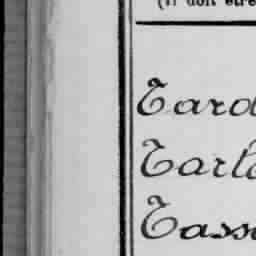 (Il doit être
Tard
Tarl
Tass